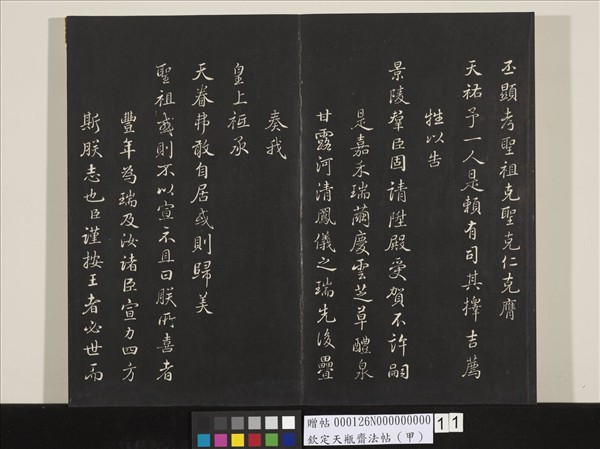 丕顯考聖祖克聖克仁克膺
天祐予一人是賴有司其擇吉薦
牲以告
景陵羣臣固請陞殿受賀不許嗣
是嘉禾瑞繭慶雲芝草醴泉
甘露河清鳳儀之瑞先後疊
奏我
皇上祗承
天眷弗敢自居或則歸美
聖祖或則不以宣示且曰朕所喜者
豐年為瑞及汝諸臣宣力四方
斯朕志也臣謹按王者必世而
贈帖 000126N000000000 11
欽定天瓶齋法帖(甲)